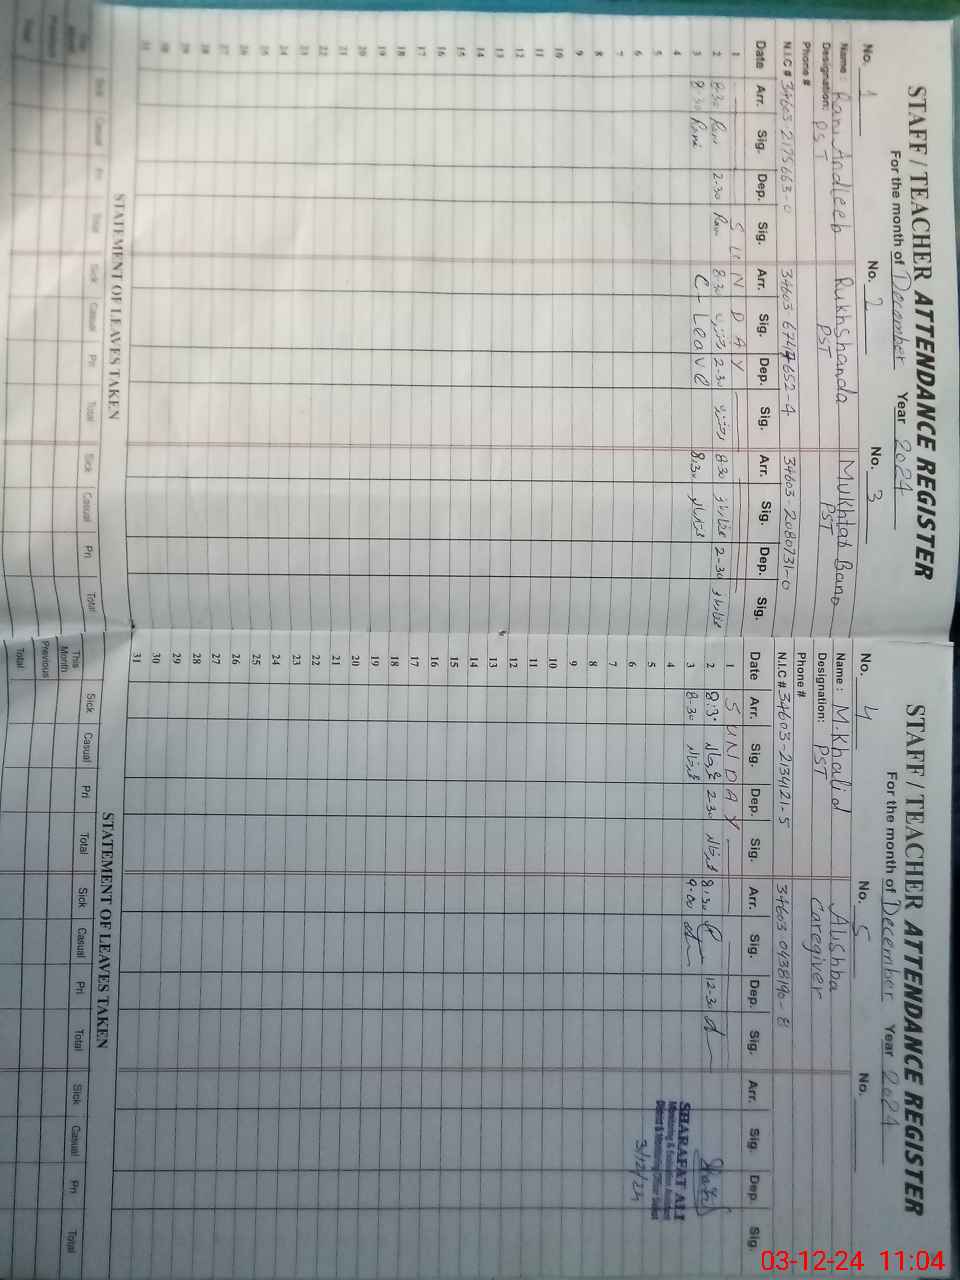 STAFF / TEACHER ATTENDANCE REGISTER
For the month of December Year 2024
No. 1 No. 2 No. 3
Name : Rani Andleeb Rukhshanda Mukhtar Bano
Designation: PST PST PST
Phone #
N.I.C # 34603-2175663-0 34603-6747652-4 34603-2080731-0
Date Arr. Sig. Dep. Sig. Arr. Sig. Dep. Sig. Arr. Sig. Dep. Sig.
1 SUNDAY
2 8:30 Rani 2-30 Rani 8:30 2-30 8:30 2-30
3 8:30 Rani C-Leave 8:30
4
5
6
7
8
9
10
11
12
13
14
15
16
17
18
19
20
21
22
23
24
25
26
27
28
29
30
31
STATEMENT OF LEAVES TAKEN
Sick Casual Pri Total Sick Casual Pri Total Sick Casual Pri Total
This Month
Previous
Total
STAFF / TEACHER ATTENDANCE REGISTER
For the month of December Year 2024
No. 4 No. 5 No.
Name : M.Khalid Alishba
Designation: PST Caregiver
Phone #
N.I.C # 34603-2134121-5 34603-0438190-8
Date Arr. Sig. Dep. Sig. Arr. Sig. Dep. Sig. Arr. Sig. Dep. Sig.
1 SUNDAY
2 8:30 2-30 8:30 12-30
3 8-30 9-00
4
5
6
7
8
9
10
11
12
13
14
15
16
17
18
19
20
21
22
23
24
25
26
27
28
29
30
31
SHARAFAT ALI
Monitoring & Evaluation Assistant
District Monitoring Officer Sialkot
3/12/24
STATEMENT OF LEAVES TAKEN
Sick Casual Pri Total Sick Casual Pri Total Sick Casual Pri Total
This Month
Previous
Total
03-12-24 11:04